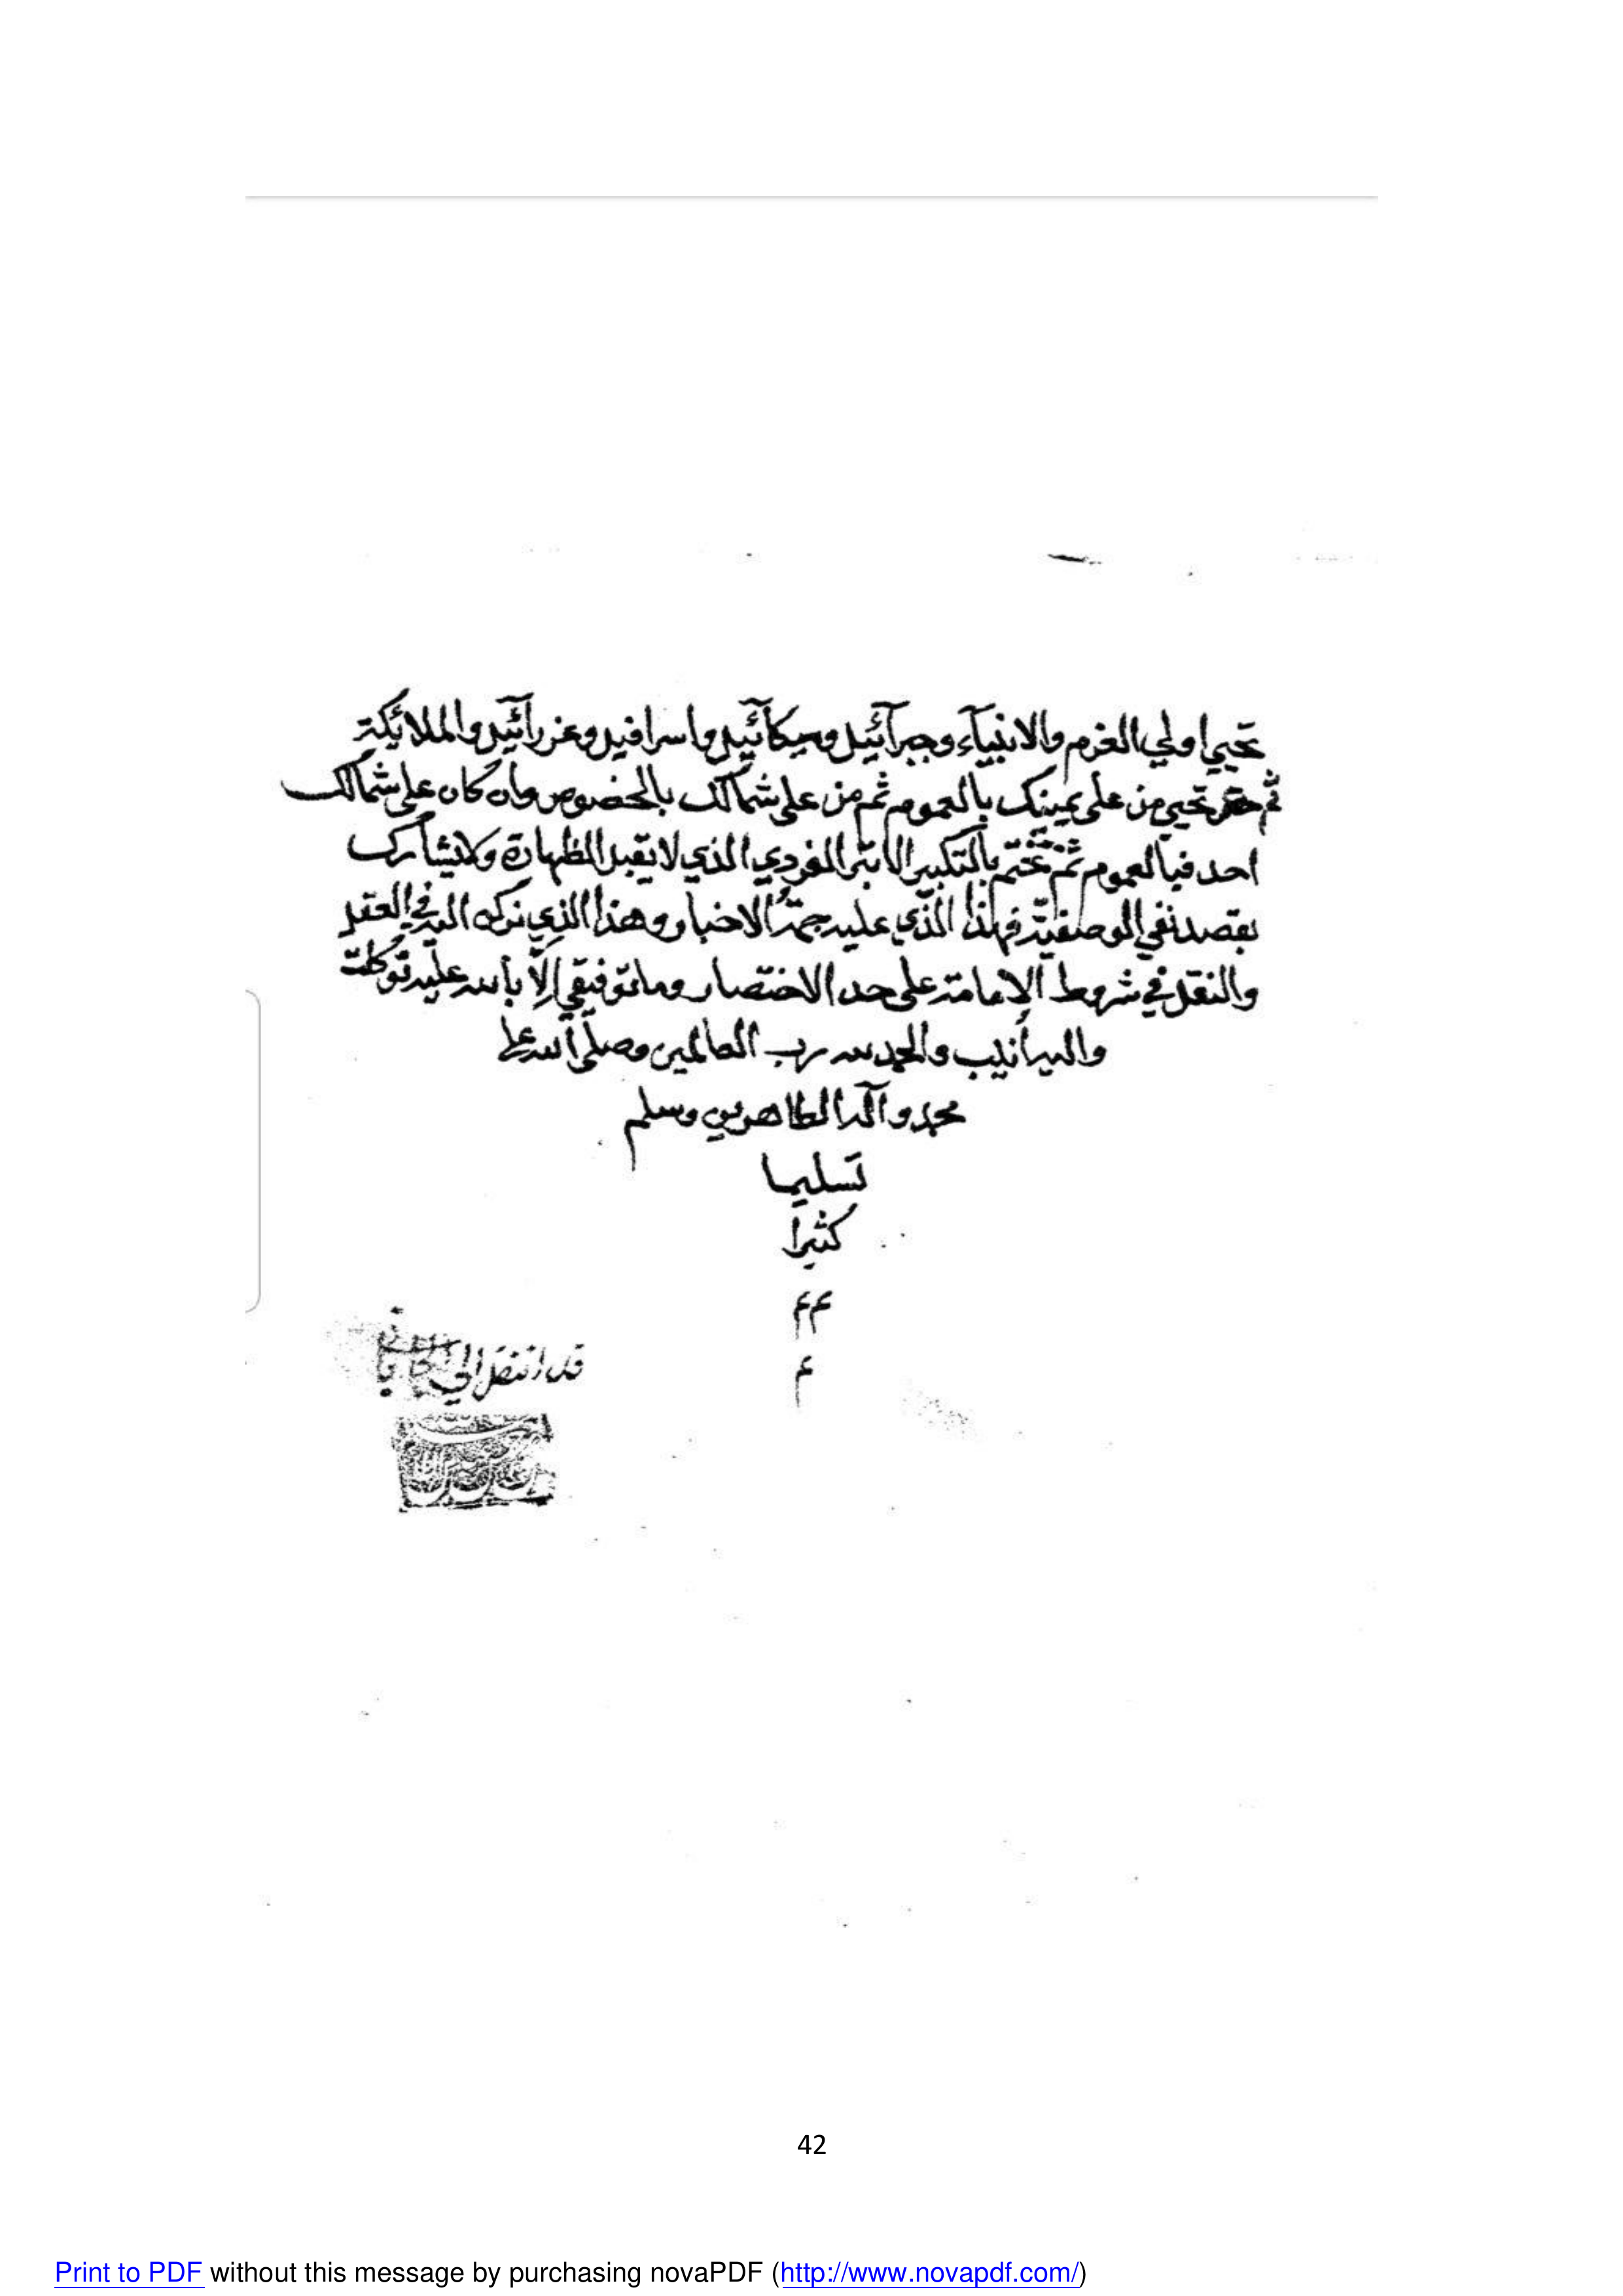 تحيي اولي العزم والانبيآء وجبرآئيل وميكآئيل واسرافيل وعزرآئيل والملائكة
ثم تحيي من على يمينك بالعموم ثم من على شمالك بالخصوص وان كان على شمالك
احد فبالعموم ثم تختم بالتكبير الذي لا يقبل الطهارة ولا يشارك
بقصد نفي الوصفية فهذا الذي عليه جمة الاخبار وهذا الذي نركن اليه في العقل
والنقل في شروط الامامة على حد الاختصار وما توفيقي إلّا بالله عليه توكلت
واليه أنيب والحمد لله رب العالمين وصلى الله على
محمد وآله الطاهرين وسلم
تسليما
كثيرا
م م
م
قد انتقل الي
42
Print to PDF without this message by purchasing novaPDF (http://www.novapdf.com/)